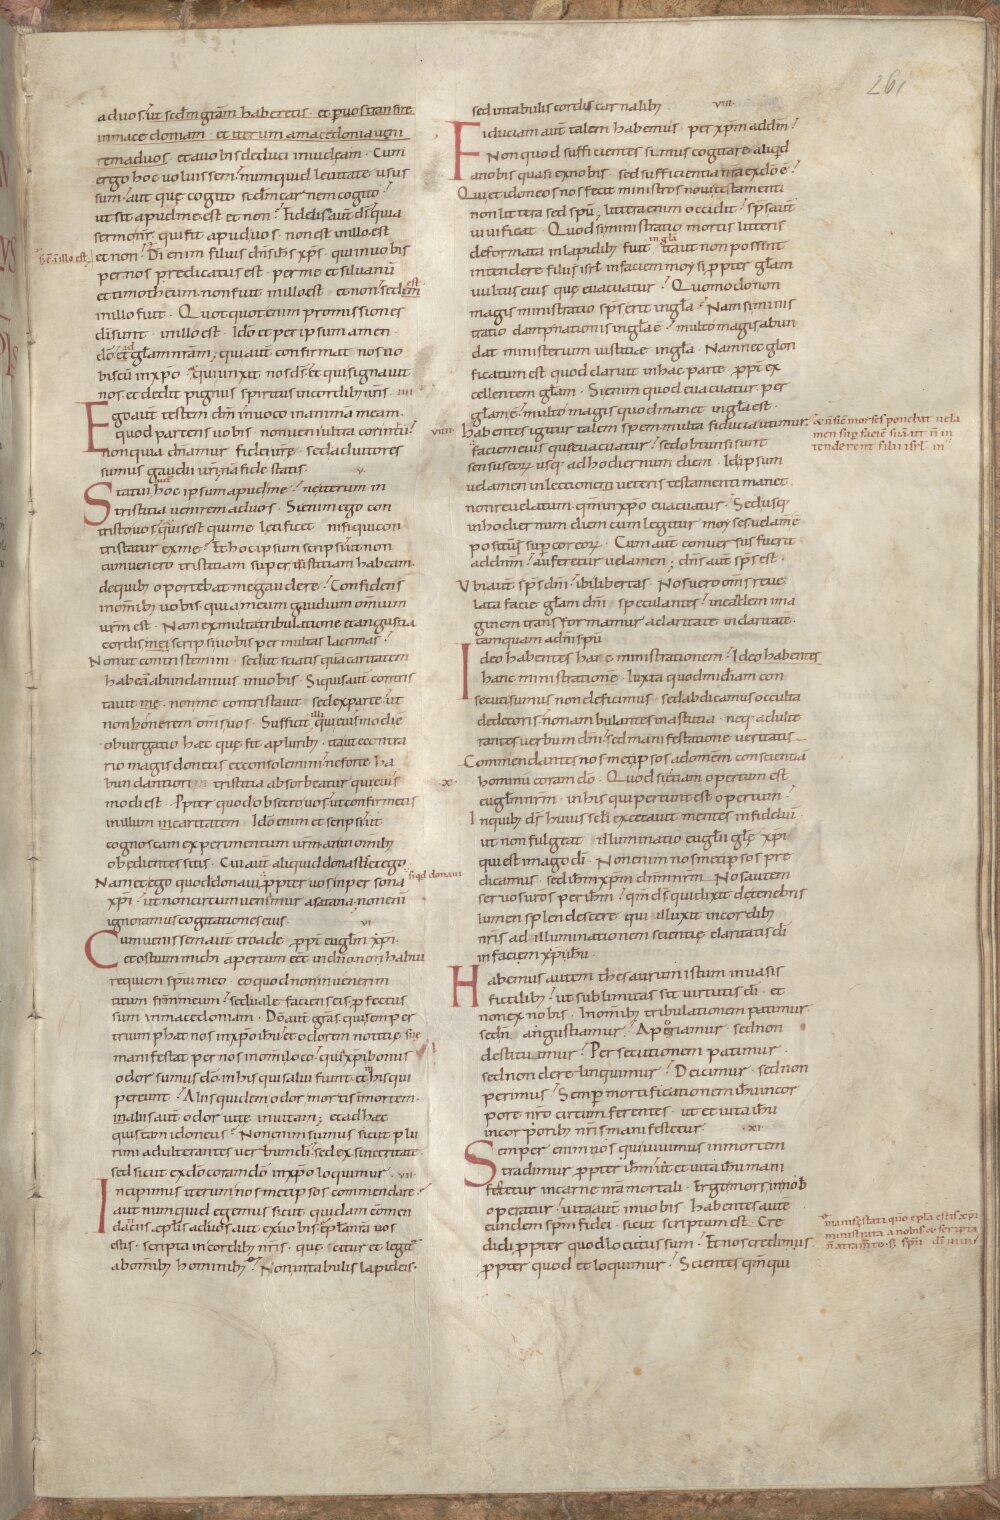 261
aduos· ut sc̄dm grām haberetis· et puos transire
inmacedoniam· et iterum amacedonia ueni
rem aduos· et auobis deduci iniudęam· Cum
ergo hoc uoluissem· numquid leuitate usus
sum· aut quę cogito sc̄dm carnem cogito·
ut sit apudme est et non· Fidelis aut̄ d̄s quia
sermonr̄ qui fit apuduos· non est inillo est
et non· Dī enim filius dn̄s ih̄s xp̄s· qui inuobis
per nos predicatus est· per me et siluanū
et timotheum· non fuit inillo est et non· sed est
inillo fuit· Quotquot enim promissiones
dī sunt· inillo est· Ido et per ipsum amen
dō ad glam nr̄am· qui aut̄ confirmat nos uo
biscū inxpo· et qui unxit nos d̄s· et qui signauit
nos et dedit pignus spiritus incordib; nr̄is· iiii·
Ego aut̄ testem dm̄ inuoco inanima meam·
quod partens uobis· non ueni ultra corintū·
non quia dn̄amur fidei ur̄e· sed adiutores
sumus gaudii ur̄i· nā fide statis· v·
Statui aut̄ hoc ipsum apud me· ne iterum in
tristitia uenirem aduos· Si enim ego con
tristo uos· et quis est qui me letificet· nisi qui con
tristatur ex me· Et hoc ipsum scripsi· ut non
cum uenero tristitiam super tristitiam habeam·
de quib; oportebat me gaudere· Confidens
inomīb; uobis· quia meum gaudium omnium
ur̄m est· Nam ex multa tribulatione et angustia
cordis mei scripsi uobis per multas lacrimas·
Non ut contristemini· sed ut sciatis qua caritatem
habeā abundantius inuobis· Si quis aut̄ contris
tauit me· non me contristauit sed ex parte· ut
non honerem om̄s uos· Sufficit illi qui eiusmodi ē
obiurgatio hæc quę fit a plurib;· ita ut econtra
rio magis donetis et consolemini· ne forte ha
bundantiori tristitia absorbeatur qui eius
modi est· Ppter quod obsecro uos· ut confirmetis
inillum incaritatem· Ido enim et scripsi· ut
cognoscam experimentum ur̄m· an inomib;
obędientes sitis· Cui aut̄ aliquid donastis· et ego·
Nam et ego quod donaui· ppter uos inpersona
xpi· ut non circumueniamur asatana· non enī
ignoramus cogitationes eius· vi·
Cum uenissem aut̄ troade ppt euglm xp̄i·
et ostium michi apertum eēt indn̄o· non habui
requiem spū meo· eo quod non inuenerim
titum frm̄ meum· sed uale faciens eis· pfectus
sum inmacedoniam· Dō aut̄ grās· qui semper
triumphat nos inxpo ih̄u· et odorem notitię suę
manifestat per nos inomī loco· quia xpi bonus
odor sumus dō· inhis qui salui fiunt· et inhis qui
pereunt· Aliis quidem odor mortis inmortem·
inaliis aut̄ odor uitę inuitam; et ad hæc
quis tam idoneus· Non enim sumus sicut pluri
rimi adulterantes uerbum dī· sed ex sinceritate·
sed sicut ex dō coram dō inxpo loquimur· vii·
Incipimus iterum nos metipsos commendare·
aut numquid egemus sicut quidam cōmen
daticiis epl̄is aduos· aut ex uobis· epl̄a nr̄a uos
estis· scripta incordib; nr̄is· quę scitur et legitur
abomīb; hominib;· Non intabulis lapideis·
sed intabulis cordis carnalib;· viii·
Fiduciam aut̄ talem habemus per xp̄m addm̄·
Non quod sufficientes sumus cogitare aliquid
anobis quasi exnobis· sed sufficientia nr̄a exdō ē·
Qui et idoneos nos fecit ministros noui testamenti
non littera sed spū; littera enim occidit· sps̄ aut̄
uiuificat· Quod si ministratio mortis litteris
deformata inlapidib; fuit ingla· ita ut non possent
intendere filii isrl̄ infaciem moysi ppter glam
uultus eius quę euacuatur· Quomodo non
magis ministratio sps̄ erit ingla· Nam si minis
tratio dampnationis ingla ē· multo magis abun
dat ministerium iustitiæ ingla· Nam nec glori
ficatum est quod claruit inhac parte ppt ex
cellentem glam· Si enim quod euacuatur per
glam ē· multo magis quod manet ingla est·
viiii· Habentes igitur talem spem· multa fiducia utimur·
faciem eius quę euacuatur· sed obtunsi sunt
sensus eorr̄ usq; ad hodiernum diem· Idipsum
uelamen inlectione ueteris testamenti manet
non reuelatum· qm̄ inxpo euacuatur· Sed usq;
inhodiernum diem cum legitur moyses uelam̄ ē
positum sup cor eorr̄· Cum aut̄ conuersus fuerit
addn̄m· auferetur uelamen; dn̄s aut̄ sps̄ est·
Vbi aut̄ sps̄ dn̄i· ibi libertas· Nos uero om̄s reue
lata facie glam dn̄i speculantes· ineadem ima
ginem transformamur aclaritate inclaritatē·
tamquam adn̄i spū
Ideo habentes hanc ministrationem· Ideo habentes
hanc ministrationē· iuxta quod m̄diam con
secuti sumus non deficimus· sed abdicamus occulta
dedecoris· non ambulantes inastutia· neq; adulte
rantes uerbum dī· sed manifestatione ueritatis
Commendantes nos metipsos adomēm conscientiā
x· hominū coram dō· Quod si etiam opertum est
euglm nr̄m· inhis qui pereunt est opertum·
Inquib; d̄s huius scłi excęcauit mentes infideliū·
ut non fulgeat illuminatio euglii glę xp̄i
qui est imago dī· Non enim nos metipsos pre
dicamus· sed ih̄m xp̄m dn̄m nr̄m· Nos autem
seruos uros per ih̄m· qm̄ d̄s qui dixit detenebris
lumen splendescere qui illuxit incordib;
nr̄is ad illuminationem scientię claritatis dī
infaciem xp̄i ih̄u·
Habemus autem thesaurum istum inuasis
fictilib;· ut sublimitas sit uirtutis dī· et
non ex nobis· Inomīb; tribulationem patimur
sed n̄ angustiamur· Aporiamur· sed non
destituimur· Persecutionem patimur·
sed non derelinquimur· Deicimur· sed non
perimus· Semp mortificationem ih̄u incor
pore nr̄o circumferentes· ut et uita ih̄u
incorporib; nr̄is manifestetur· xi·
Semper enim nos qui uiuimus inmortem
tradimur ppter ih̄m· ut et uita ih̄u mani
festetur incarne nr̄a mortali· Ergo mors innob̄
operatur· uita aut̄ inuobis· habentes autē
eundem spm̄ fidei· sicut scriptum est· Cre
didi ppter quod locutus sum· Et nos credimus
ppter quod et loquimur· Scientes qm̄ qui
s̄ ē inillo est·
siqd donaui
& n̄ sic̄ moises ponebat uela
men sup̄ faciē suā· ut n̄ in
tenderent filii isrl̄ in
manifestati qn̄o epl̄a estis xp̄i
ministrata anobis· & scripta
n̄ atramto· s; spū dī uiui·